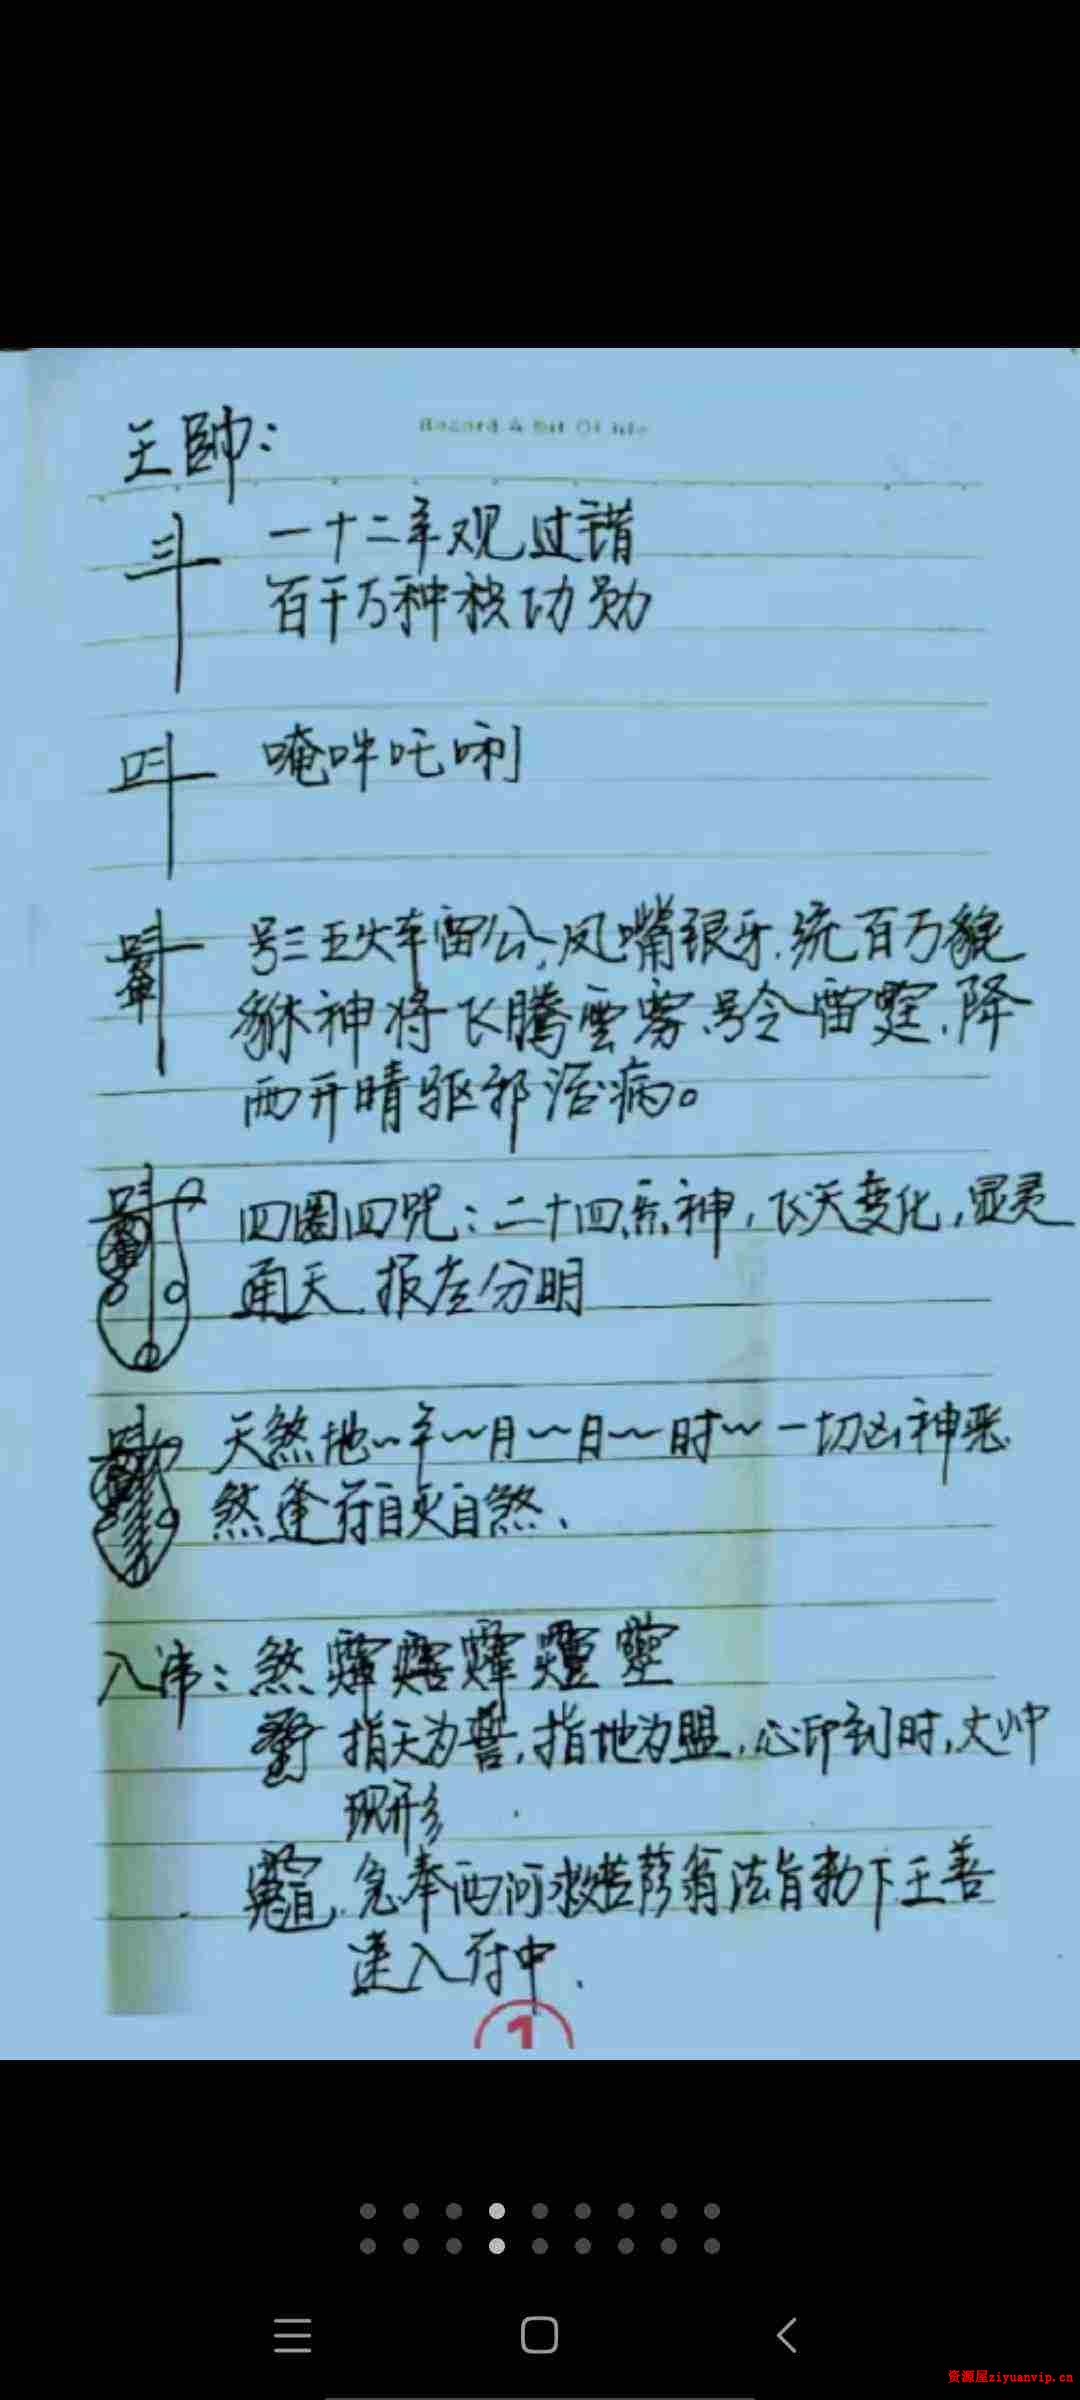 Record A Bit Of life
王帥：
一十二年观过错
百千万种积功勋
唵吽吒唎
号三五火车雷公，凤嘴银牙，统百万貔
貅神将飞腾雲雾，号令雷霆，降
雨开晴驱邪治病。
四圈四咒：二十四炁神，飞天变化，显灵
通天，报应分明
天煞地～年～月～日～时～一切凶神恶
煞逢符自灭自煞、
入讳：煞
指天为誓，指地为盟，心印到时，大帅
现形
急奉西河救苦萨翁法旨勅下王善
速入符中．
1
资源屋ziyuanvip.cn